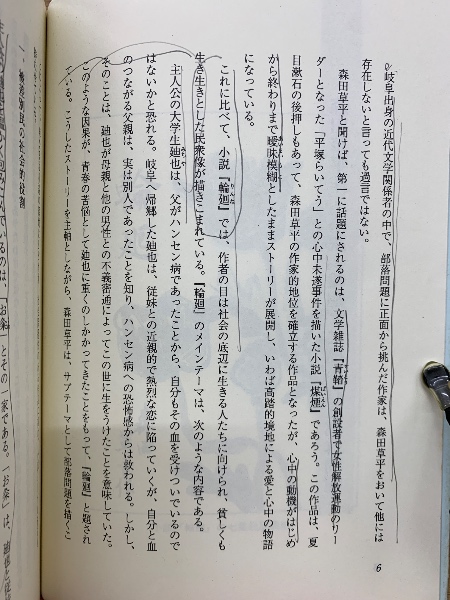 岐阜出身の近代文学関係者の中で、部落問題に正面から挑んだ作家は、森田草平をおいて他には
存在しないと言っても過言ではない。
森田草平と聞けば、第一に話題にされるのは、文学雑誌『青鞜』の創設者で女性解放運動のリー
ダーとなった「平塚らいてう」との心中未遂事件を描いた小説『煤煙』であろう。この作品は、夏
目漱石の後押しもあって、森田草平の作家的地位を確立する作品となったが、心中の動機がはじめ
から終わりまで曖昧模糊としたままストーリーが展開し、いわば高踏的境地による愛と心中の物語
になっている。
これに比べて、小説『輪廻』では、作者の目は社会の底辺に生きる人たちに向けられ、貧しくも
生き生きとした民衆像が描きこまれている。『輪廻』のメインテーマは、次のような内容である。
主人公の大学生廸也は、父がハンセン病であったことから、自分もその血を受けついでいるので
はないかと恐れる。岐阜へ帰郷した廸也は、従妹との近親的で熱烈な恋に陥っていくが、自分と血
のつながる父親は、実は別人であったことを知り、ハンセン病への恐怖感からは救われる。しかし、
そのことは、廸也が母親と他の男性との不義密通によってこの世に生をうけたことを意味していた。
このような因果が、青春の苦悩として廸也に重くのしかかってきたことをもって、『輪廻』と題され
ている。こうしたストーリーを主軸としながら、森田草平は、サブテーマとして部落問題を描くこ
6